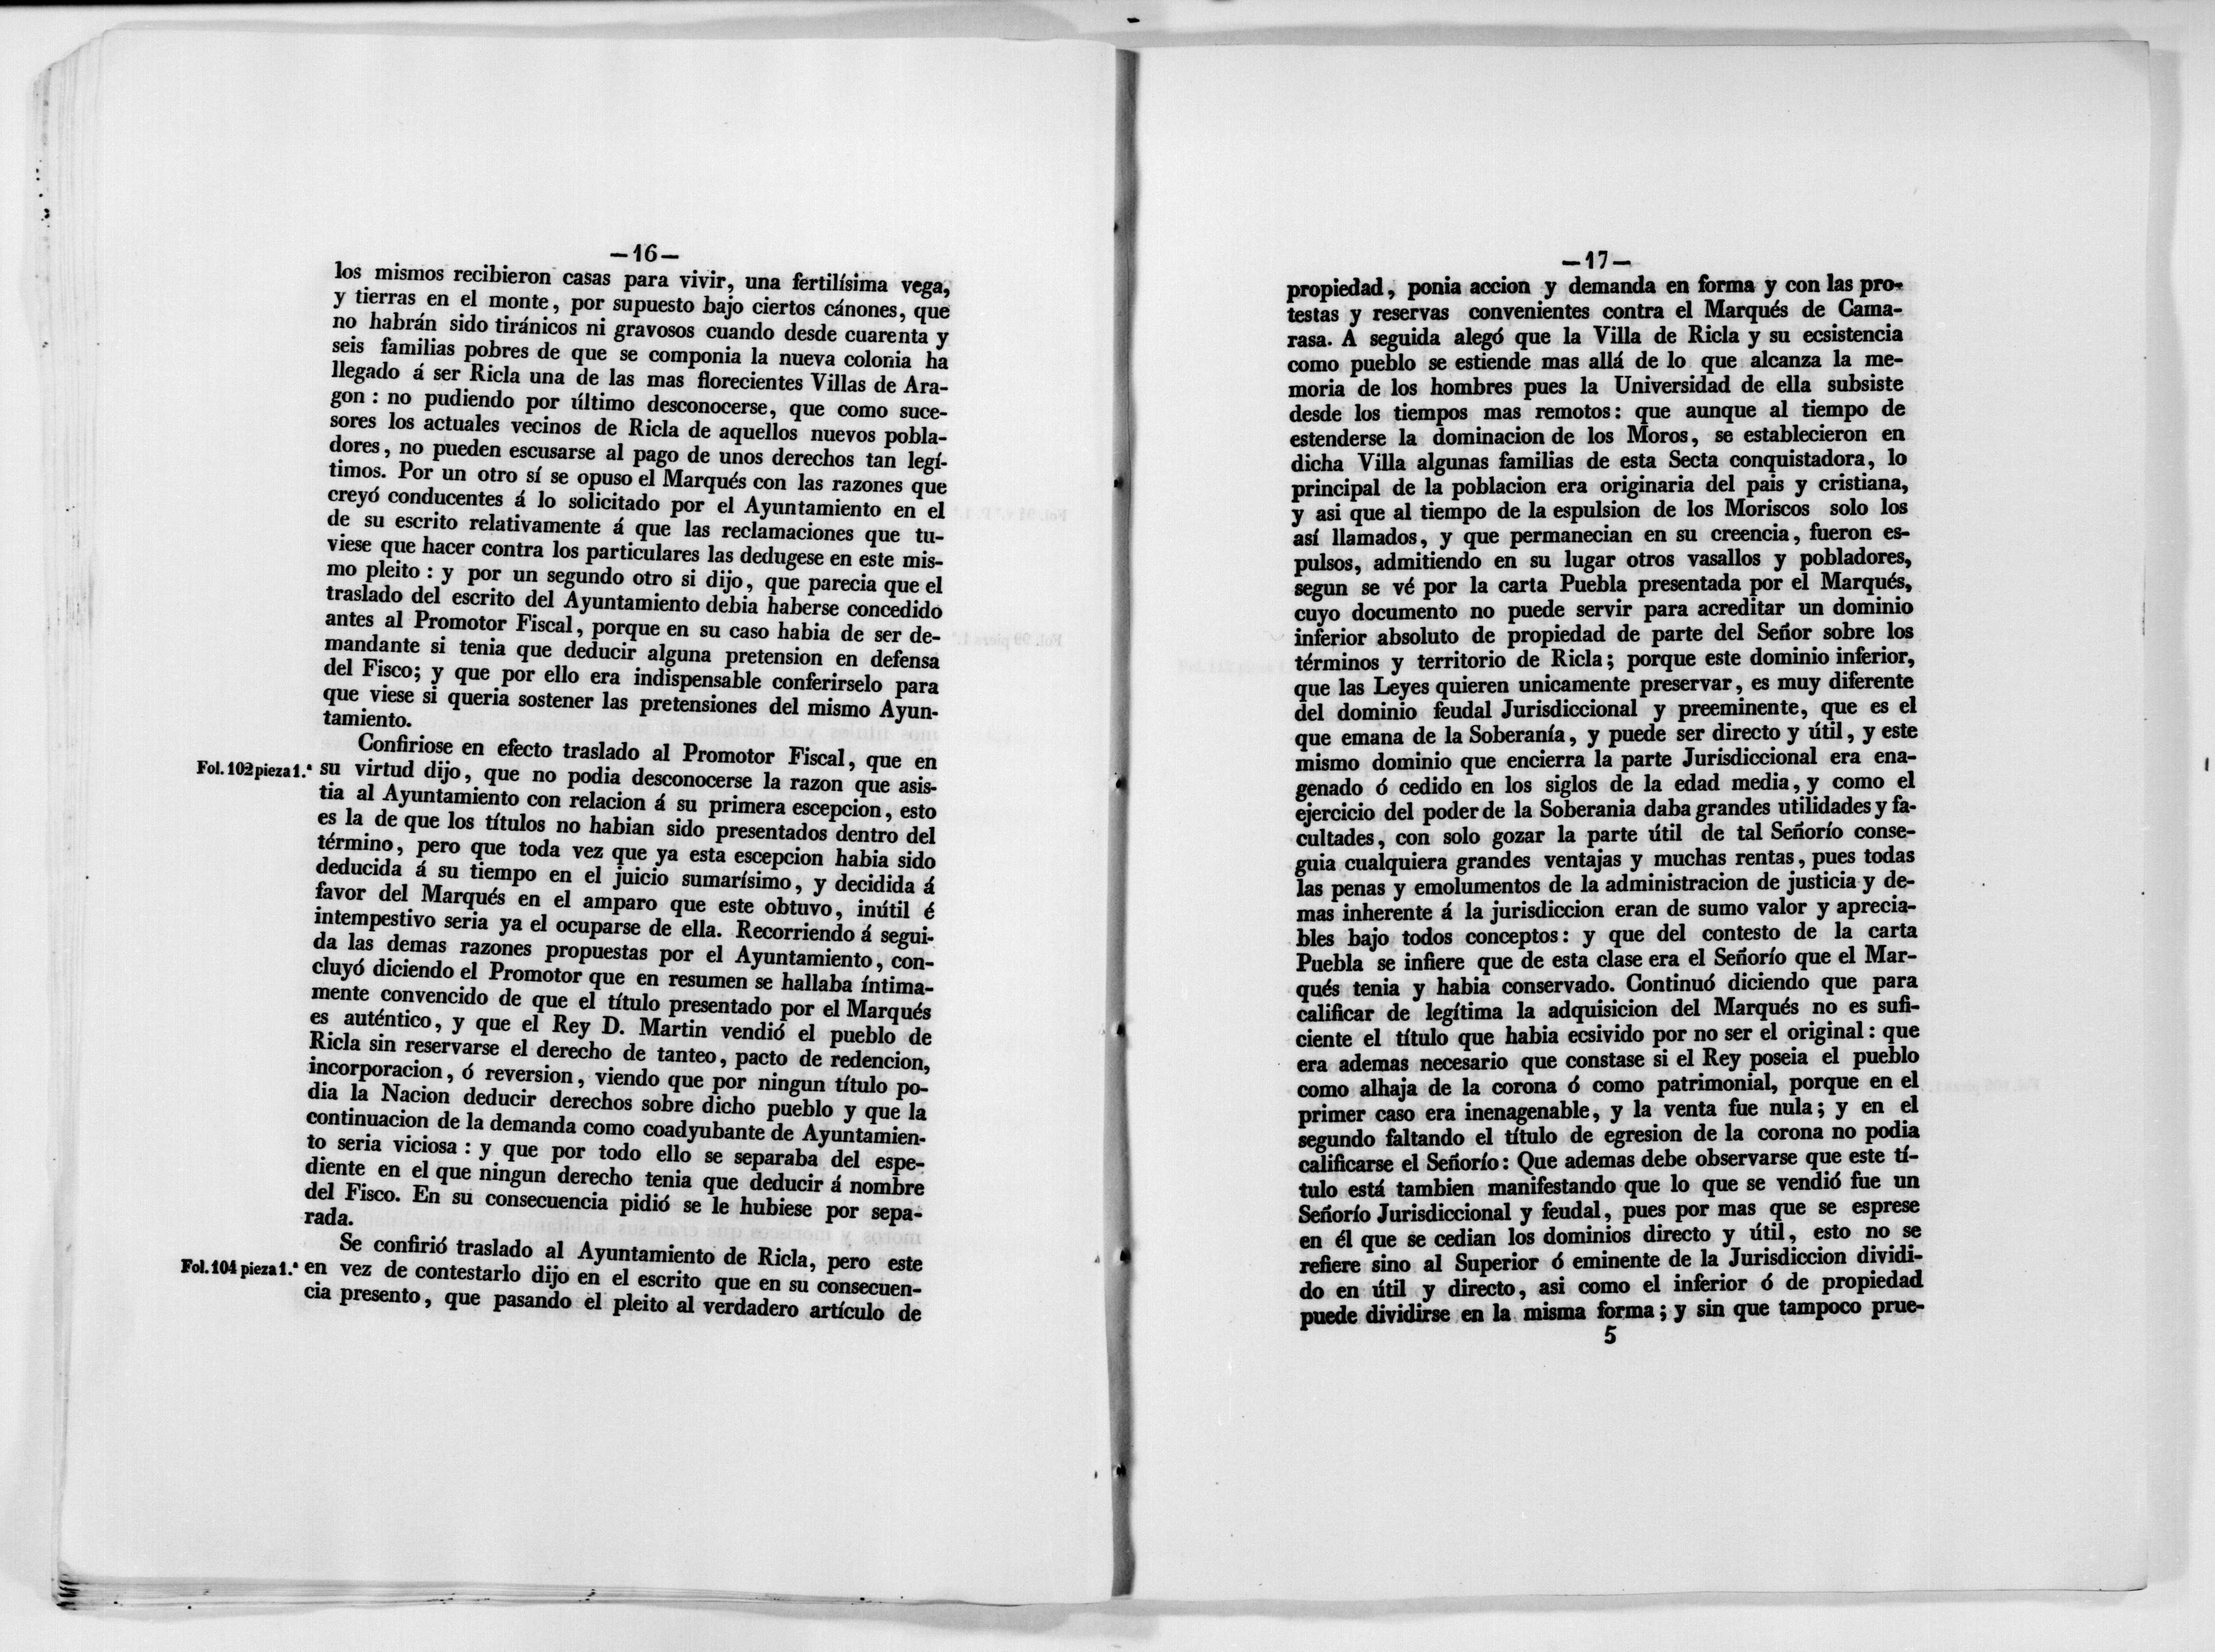 —16—
los mismos recibieron casas para vivir, una fertilísima vega,
y tierras en el monte, por supuesto bajo ciertos cánones, que
no habrán sido tiránicos ni gravosos cuando desde cuarenta y
seis familias pobres de que se componia la nueva colonia ha
llegado á ser Ricla una de las mas florecientes Villas de Ara-
gon : no pudiendo por último desconocerse, que como suce-
sores los actuales vecinos de Ricla de aquellos nuevos pobla-
dores, no pueden escusarse al pago de unos derechos tan legí-
timos. Por un otro sí se opuso el Marqués con las razones que
creyó conducentes á lo solicitado por el Ayuntamiento en el
de su escrito relativamente á que las reclamaciones que tu-
viese que hacer contra los particulares las dedugese en este mis-
mo pleito : y por un segundo otro si dijo, que parecia que el
traslado del escrito del Ayuntamiento debia haberse concedido
antes al Promotor Fiscal, porque en su caso habia de ser de-
mandante si tenia que deducir alguna pretension en defensa
del Fisco; y que por ello era indispensable conferirselo para
que viese si queria sostener las pretensiones del mismo Ayun-
tamiento.
Confiriose en efecto traslado al Promotor Fiscal, que en
Fol. 102 pieza 1.ª su virtud dijo, que no podia desconocerse la razon que asis-
tia al Ayuntamiento con relacion á su primera escepcion, esto
es la de que los títulos no habian sido presentados dentro del
término, pero que toda vez que ya esta escepcion habia sido
deducida á su tiempo en el juicio sumarísimo, y decidida á
favor del Marqués en el amparo que este obtuvo, inútil é
intempestivo seria ya el ocuparse de ella. Recorriendo á segui-
da las demas razones propuestas por el Ayuntamiento, con-
cluyó diciendo el Promotor que en resumen se hallaba íntima-
mente convencido de que el título presentado por el Marqués
es auténtico, y que el Rey D. Martin vendió el pueblo de
Ricla sin reservarse el derecho de tanteo, pacto de redencion,
incorporacion, ó reversion, viendo que por ningun título po-
dia la Nacion deducir derechos sobre dicho pueblo y que la
continuacion de la demanda como coadyubante de Ayuntamien-
to seria viciosa : y que por todo ello se separaba del espe-
diente en el que ningun derecho tenia que deducir á nombre
del Fisco. En su consecuencia pidió se le hubiese por sepa-
rada.
Se confirió traslado al Ayuntamiento de Ricla, pero este
Fol. 104 pieza 1.ª en vez de contestarlo dijo en el escrito que en su consecuen-
cia presento, que pasando el pleito al verdadero artículo de
—17—
propiedad, ponia accion y demanda en forma y con las pro-
testas y reservas convenientes contra el Marqués de Cama-
rasa. A seguida alegó que la Villa de Ricla y su ecsistencia
como pueblo se estiende mas allá de lo que alcanza la me-
moria de los hombres pues la Universidad de ella subsiste
desde los tiempos mas remotos: que aunque al tiempo de
estenderse la dominacion de los Moros, se establecieron en
dicha Villa algunas familias de esta Secta conquistadora, lo
principal de la poblacion era originaria del pais y cristiana,
y asi que al tiempo de la espulsion de los Moriscos solo los
así llamados, y que permanecian en su creencia, fueron es-
pulsos, admitiendo en su lugar otros vasallos y pobladores,
segun se vé por la carta Puebla presentada por el Marqués,
cuyo documento no puede servir para acreditar un dominio
inferior absoluto de propiedad de parte del Señor sobre los
términos y territorio de Ricla; porque este dominio inferior,
que las Leyes quieren unicamente preservar, es muy diferente
del dominio feudal Jurisdiccional y preeminente, que es el
que emana de la Soberanía, y puede ser directo y útil, y este
mismo dominio que encierra la parte Jurisdiccional era ena-
genado ó cedido en los siglos de la edad media, y como el
ejercicio del poder de la Soberania daba grandes utilidades y fa-
cultades, con solo gozar la parte útil de tal Señorío conse-
guia cualquiera grandes ventajas y muchas rentas, pues todas
las penas y emolumentos de la administracion de justicia y de-
mas inherente á la jurisdiccion eran de sumo valor y aprecia-
bles bajo todos conceptos: y que del contesto de la carta
Puebla se infiere que de esta clase era el Señorío que el Mar-
qués tenia y habia conservado. Continuó diciendo que para
calificar de legítima la adquisicion del Marqués no es sufi-
ciente el título que habia ecsivido por no ser el original : que
era ademas necesario que constase si el Rey poseia el pueblo
como alhaja de la corona ó como patrimonial, porque en el
primer caso era inenagenable, y la venta fue nula; y en el
segundo faltando el título de egresion de la corona no podia
calificarse el Señorío: Que ademas debe observarse que este tí-
tulo está tambien manifestando que lo que se vendió fue un
Señorío Jurisdiccional y feudal, pues por mas que se esprese
en él que se cedian los dominios directo y útil, esto no se
refiere sino al Superior ó eminente de la Jurisdiccion dividi-
do en útil y directo, asi como el inferior ó de propiedad
puede dividirse en la misma forma; y sin que tampoco prue-
5